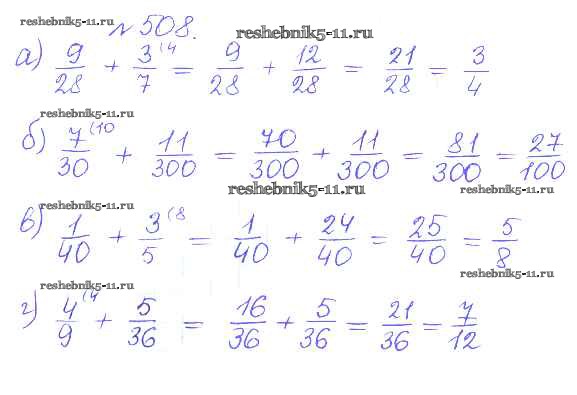 reshebnik5-11.ru № 508. reshebnik5-11.ru
а) 9/28 + 3/7 (4 = 9/28 + 12/28 = 21/28 = 3/4
reshebnik5-11.ru
б) 7/30 (10 + 11/300 = 70/300 + 11/300 = 81/300 = 27/100
reshebnik5-11.ru reshebnik5-11.ru reshebnik5-11.ru
в) 1/40 + 3/5 (8 = 1/40 + 24/40 = 25/40 = 5/8
reshebnik5-11.ru reshebnik5-11.ru
г) 4/9 (4 + 5/36 = 16/36 + 5/36 = 21/36 = 7/12